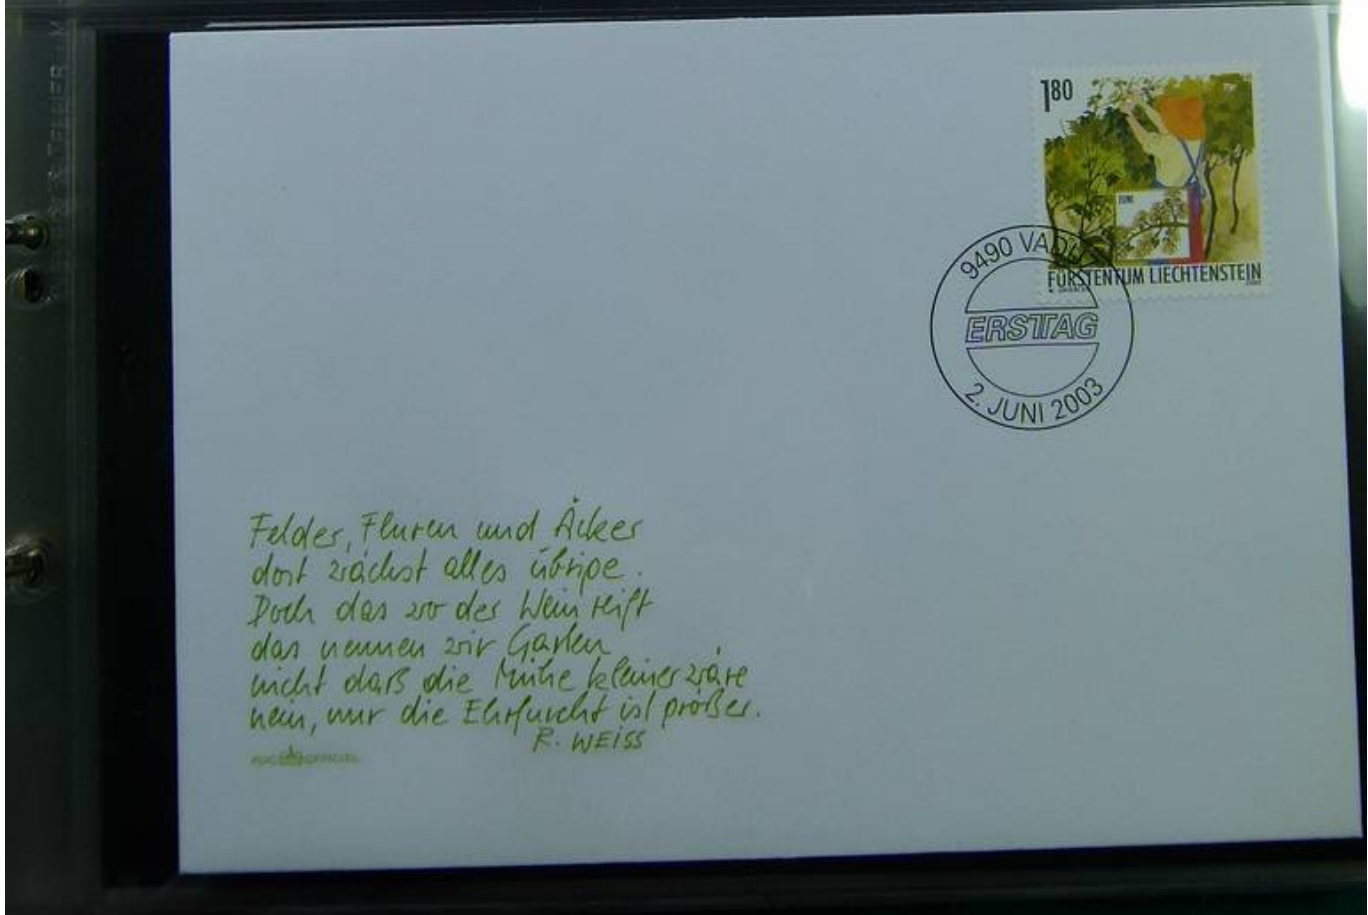 180
JUNI
FÜRSTENTUM LIECHTENSTEIN
9490 VADUZ
ERSTTAG
2. JUNI 2003
Felder, Fluren und Äcker
dort wächst alles übrige.
Doch das wo der Wein reift
das nennen wir Garten
nicht daß die Mühe kleiner wäre
nein, nur die Ehrfurcht ist größer.
R. WEISS
FDC OFFICIEL